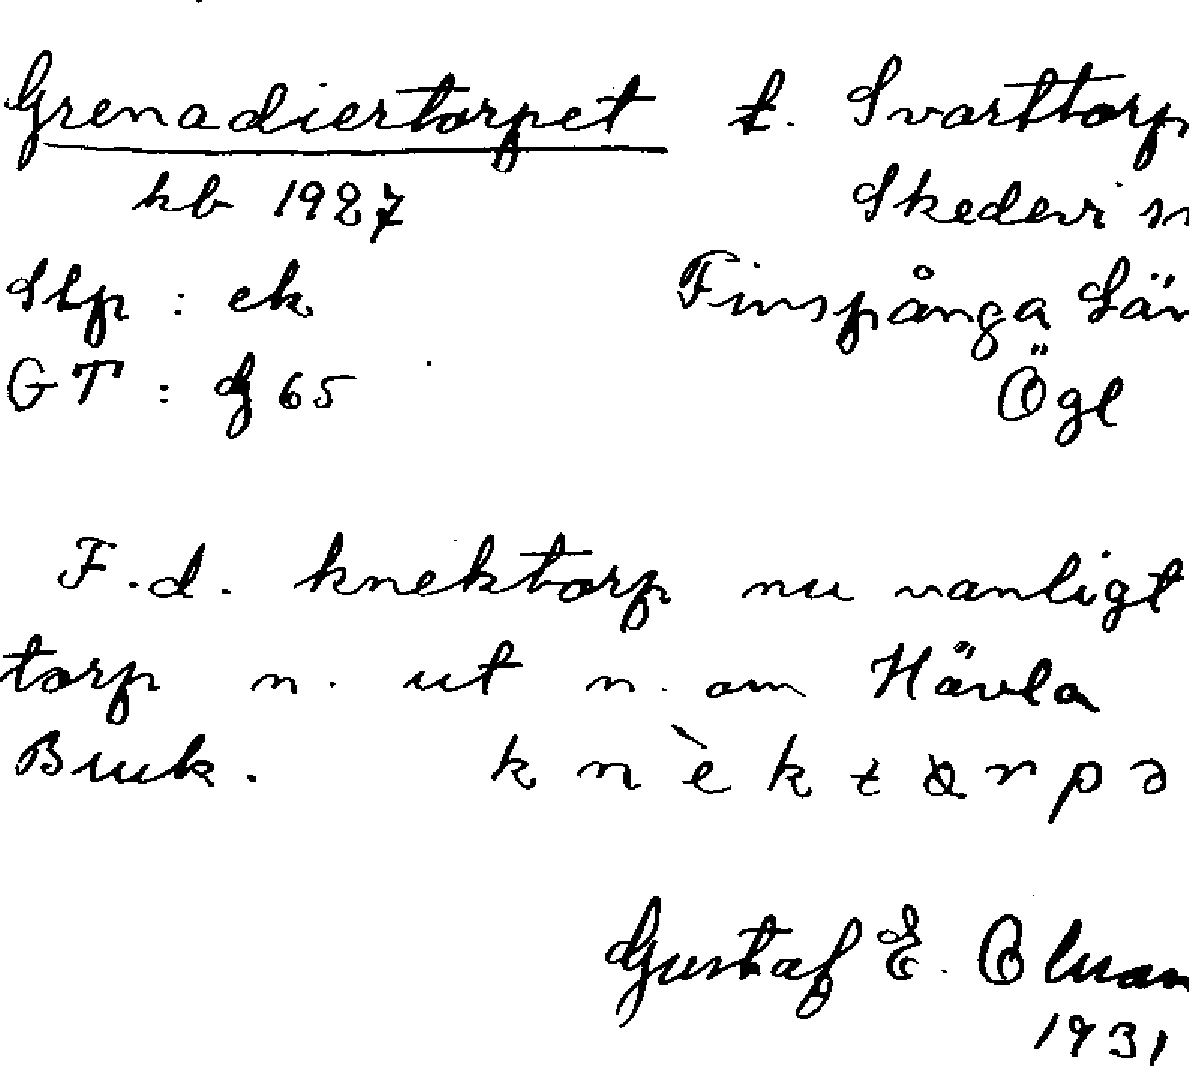 Grenadiertorpet t. Svarttorp
hb 1927 Skedevi s
Slp : ek Finspånga Län
GT : dj 65 Ögl
F.d. knektorp nu vanligt
torp n. ut n. om Hävla
Bruk. k n è k t ɑ r p ə
Gustaf E. Olsson
1931